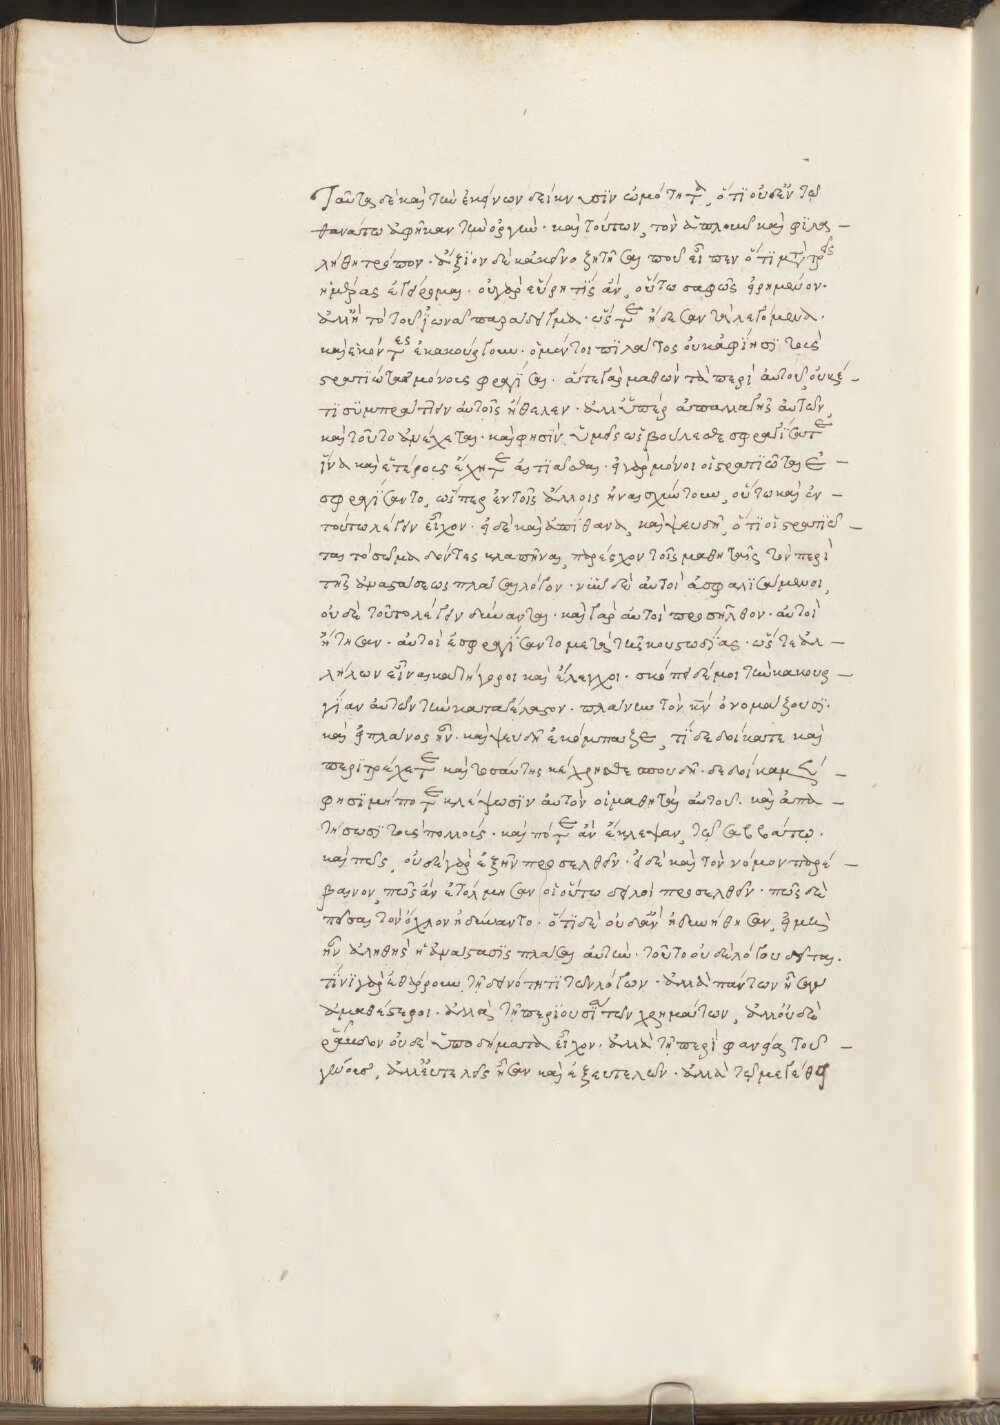 Ταῦτα δὲ καὶ τὴν ἐκείνων δείκνυσϊν ὠμότητα, ὅτϊ οὐδ' ἐν τῷ
θανάτω ἀφῆκαν τὴν ὀργὴν· καὶ τούτων, τὸν ἄπλουν καὶ φϊλα –
λήθη τρόπον· ἄξϊον δὲ κἀκεῖνο ζητῆσαι ποῦ εἶπεν ὅτϊ μετὰ τρεῖς
ἡμέρας ἐγείρομαι. οὐ γὰρ εὕρη τίς ἂν, οὕτω σαφῶς εἰρημένον.
ἀλλ' ἢ τὸ τοῦ ϊωνᾶ παράδειγμα· ὥστε ἤδεσαν τὰ λεγόμενα.
καὶ ἑκόντες ἐκακούργουν. ὁ μέντοι πϊλάτος
στρατϊώτας μόνους σφραγΐσαι. ἅτε γὰρ μαθὼν τὰ περὶ αὐτοῦ, οὐκέ –
τϊ συμπράττειν αὐτοῖς ἤθελεν. ἀλλ' ὑπὲρ ἀπαλλαγῆς αὐτῶν,
καὶ τοῦτο ἀνέχεται. καὶ φησϊν, ὑμεῖς ὡς βούλεσθε σφραγΐσατε
ΐνα καὶ ἑτέρους ἔχητε αἰτϊᾶσθαι. εἰ γὰρ μόνοι οἱ στρατϊῶται ἐ –
σφραγΐσαντο, ὥσπερ ἐν τοῖς ἄλλοις ἠναισχύντουν, οὕτω καὶ ἐν –
τούτω λέγειν εἶχον. εἰ δὲ καὶ ἀπΐθανα, καὶ ψευδῆ, ὅτϊ οἱ στρατϊῶ –
ται τὸ σῶμα δόντες κλαπῆναι, παρέσχον τοῖς μαθηταῖς τὸν περὶ
τῆς ἀναστάσεως πλάσαι λόγον. νῦν δὲ αὐτοὶ ἀσφαλϊσάμενοι,
οὐδὲ τοῦτο λέγειν δύνανται. καὶ γὰρ αὐτοὶ προσῆλθον. αὐτοὶ
ἤτησαν. αὐτοὶ ἐσφραγΐσαντο μετὰ τῆς κουστωδΐας. ὥστε ἀλ –
λήλων εἶναι κατήγοροι καὶ ἔλεγχοι. σκόπει δέ μοι τὴν κακουρ –
γΐαν αὐτῶν τὴν καταγέλαστον. πλάνον τὸν κν ὀνομάζουσϊ.
καὶ εἰ πλάνος ἦν. καὶ ψευδῆ ἐκόμπαζε, τΐ δεδοίκατε καὶ
περϊτρέχετε καὶ τοσαύτης κέχρησθε σπουδῆ. δεδοίκαμεν –
φησϊ μήποτε κλέψωσϊν αὐτὸν οἱ μαθηταὶ αὐτοῦ. καὶ ἀπα –
τήσωσϊ τοὺς πολλούς. καὶ πότε ἂν ἔκλεψαν, τῷ σαββάτω.
καὶ πῶς, οὐδὲ γὰρ ἐξῆν προσελθεῖν. εἰ δὲ καὶ τὸν νόμον παρέ –
βαινον, πῶς ἂν ἐτόλμησαν οἱ οὕτω δειλοὶ προσελθεῖν. πῶς δὲ
πεῖσαι τὸν ὄχλον ἠδύναντο. ὅτϊ δὲ οὐδ' ἂν ἠδυνήθησαν, εἰ μὴ
ἦν ἀληθὴς ἡ ἀνάστασϊς πλάσαι αὐτὴν. τοῦτο οὐδὲ λόγου δεῖται.
τΐνϊ γὰρ ἐθάρρουν, τῆ δεινότητϊ τῶν λόγων. ἀλλὰ πάντων ἦσαν
ἀμαθέστεροι. ἀλλὰ τῆ περϊουσΐα τῶν χρημάτων, ἀλλ' οὐδὲ
ῥάβδον οὐδὲ ὑποδήματα εἶχον. ἀλλὰ τῆ περϊφανεία τοῦ –
γένους, ἀλλ' εὐτελεῖς ἦσαν καὶ ἐξ εὐτελῶν. ἀλλὰ τῷ μεγέθει